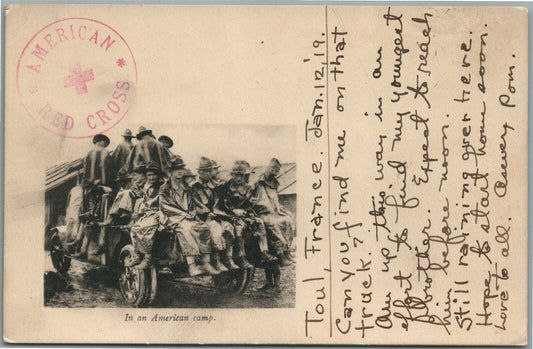 AMERICAN
RED CROSS
In an American camp.
Toul, France. Jan. 12, '19.
Can you find me on that
truck?
Am up this way in an
effort to find my youngest
brother. Expect to reach
him before noon.
Still raining over here.
Hope to start home soon.
Love to all.